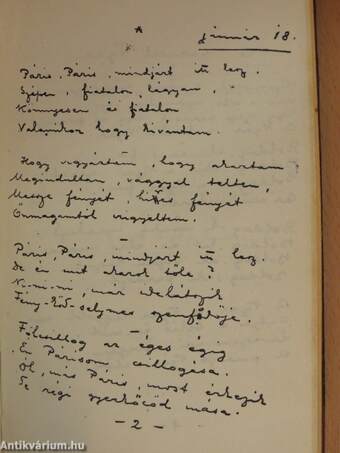 *
január 18.
Páris, Páris, mindjárt itt lesz.
Szépen, fiatalon, lágyan,
Könnyesen és fiatalon
Valamikor hogy kivántam.
Hogy vigyáztam, hogy akartam
Megindultan, vággyal telten,
Messze fényét, híres fényét
Önmagamtól irigyeltem.
–
Páris, Páris, mindjárt itt lesz.
De én mit akarok tőle?
Ni-ni-ni, már idelátszik
Fény-köd-selymes szemfödője.
–
Fölcsillog az éges égig
Én Párisom csillogása.
Óh, Páris, most érkezik
Te régi gyerkőcöd mása.
– 2 –
Antikvárium.hu